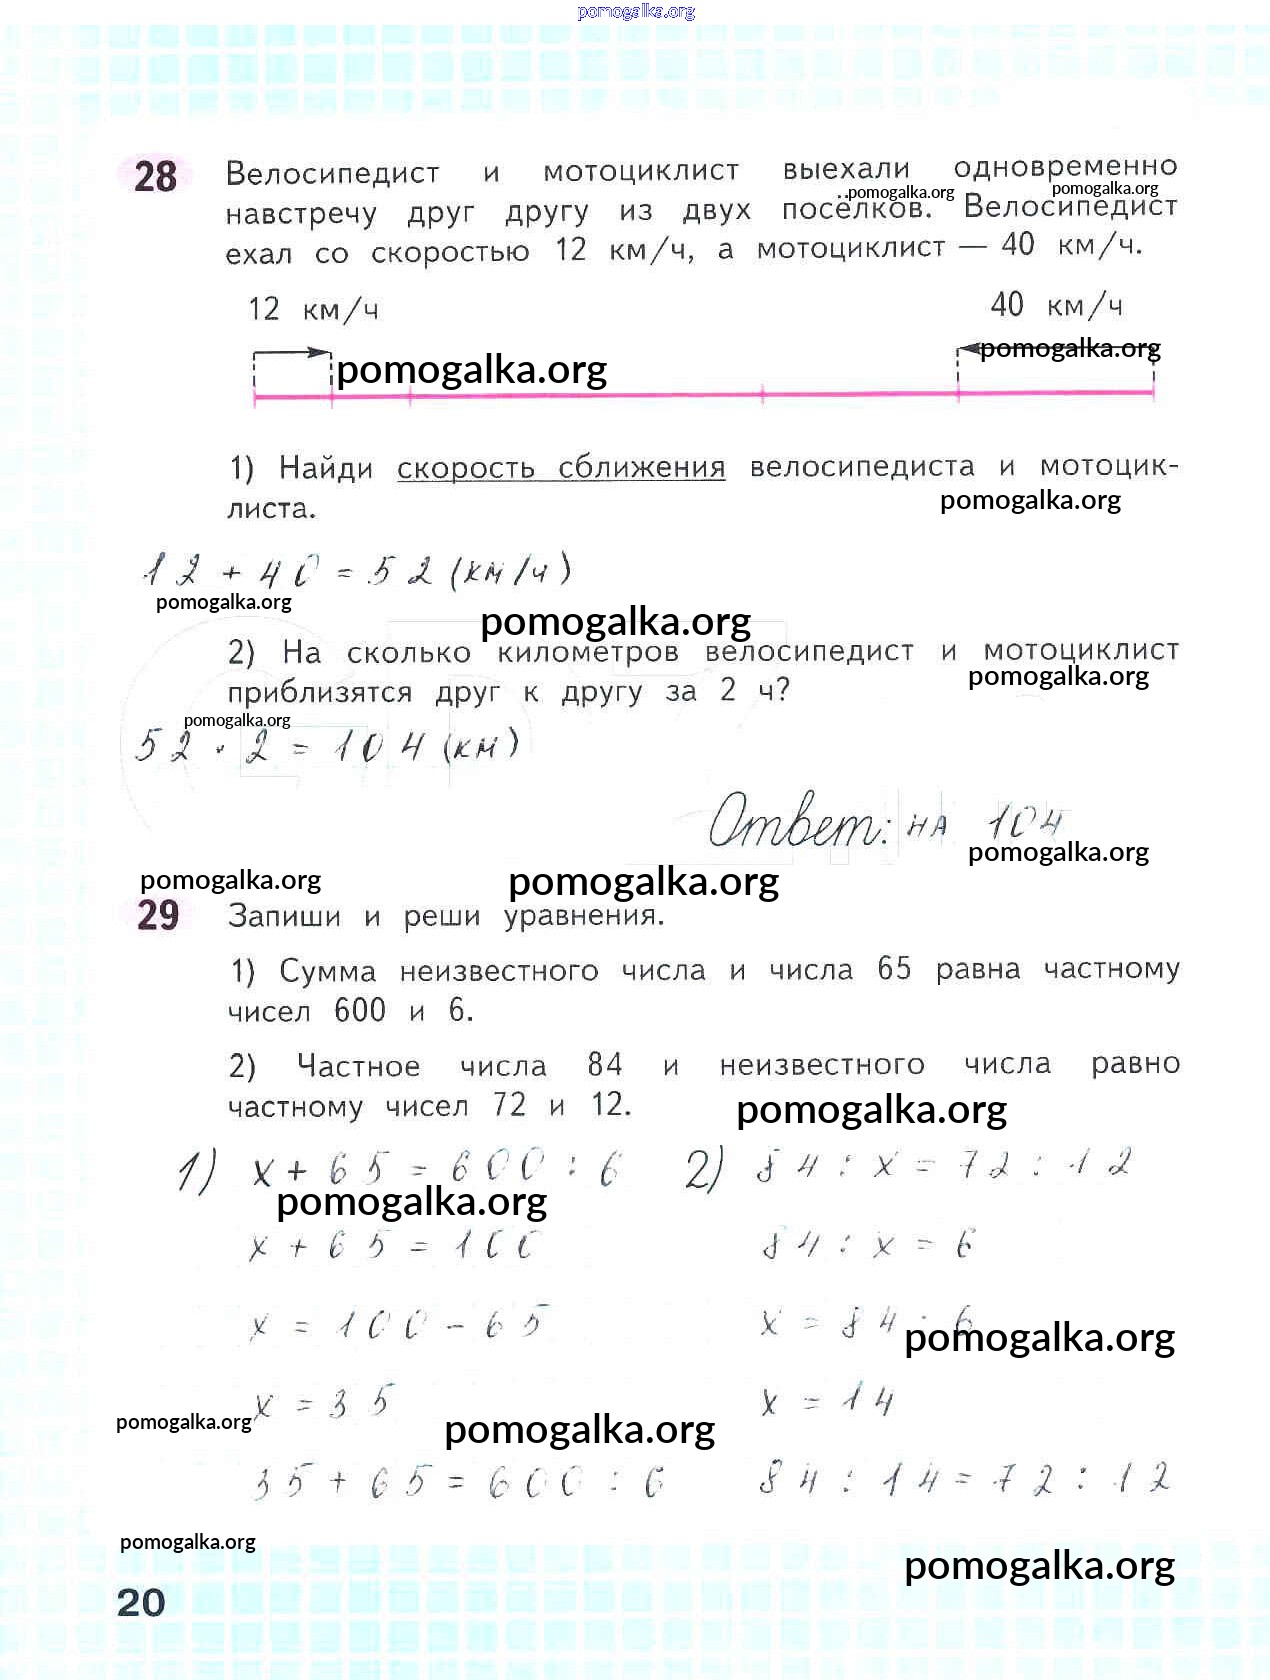 pomogalka.org
28 Велосипедист и мотоциклист выехали одновременно
pomogalka.org pomogalka.org
навстречу друг другу из двух посёлков. Велосипедист
ехал со скоростью 12 км/ч, а мотоциклист — 40 км/ч.
12 км/ч 40 км/ч
pomogalka.org pomogalka.org
1) Найди скорость сближения велосипедиста и мотоцик-
листа.
pomogalka.org
12 + 40 = 52 (км/ч)
pomogalka.org pomogalka.org
2) На сколько километров велосипедист и мотоциклист
pomogalka.org
приблизятся друг к другу за 2 ч?
pomogalka.org
52 · 2 = 104 (км)
Ответ: на 104
pomogalka.org
pomogalka.org pomogalka.org
29 Запиши и реши уравнения.
1) Сумма неизвестного числа и числа 65 равна частному
чисел 600 и 6.
2) Частное числа 84 и неизвестного числа равно
частному чисел 72 и 12.
pomogalka.org
1) х + 65 = 600 : 6 2) 84 : х = 72 : 12
pomogalka.org
х + 65 = 100 84 : х = 6
х = 100 - 65 х = 84 : 6
pomogalka.org
х = 35 х = 14
pomogalka.org pomogalka.org
35 + 65 = 600 : 6 84 : 14 = 72 : 12
pomogalka.org
pomogalka.org
20